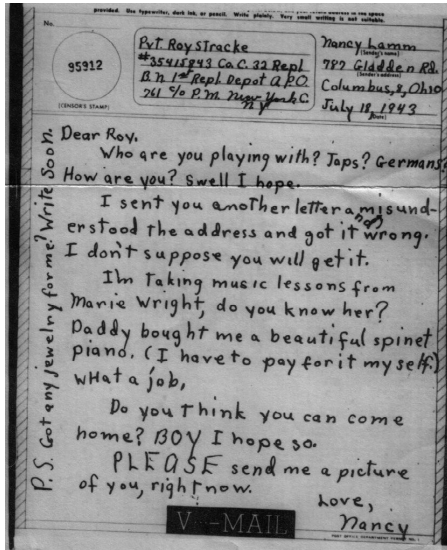 provided. Use typewriter, dark ink, or pencil. Write plainly. Very small writing is not suitable.
No.
95912
(CENSOR'S STAMP)
Pvt. Roy Stracke
#35415943 Co.C. 32 Repl
B.N. 1st Repl. Depot A.P.O.
761 c/o P.M. New York C.
NY
Nancy Lamm
(Sender's name)
787 Gladden Rd.
(Sender's address)
Columbus, 8, Ohio
July 18, 1943
(Date)
Dear Roy.
Who are you playing with? Japs? Germans?
How are you? Swell I hope.
I sent you another letter and misund-
erstood the address and got it wrong.
I don't suppose you will get it.
I'm taking music lessons from
Marie Wright, do you know her?
Daddy bought me a beautiful spinet
piano. (I have to pay for it myself.)
What a job,
Do you think you can come
home? BOY I hope so.
PLEASE send me a picture
of you, right now.
Love,
Nancy
P.S. Got any jewelry for me? Write Soon.
V--MAIL